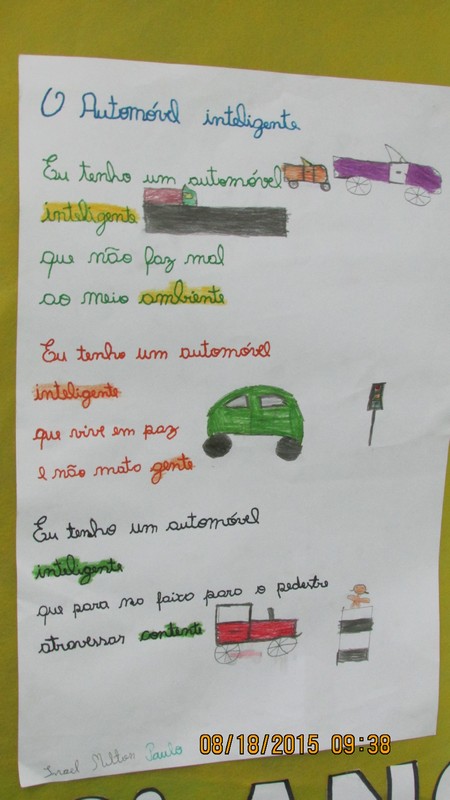 O Automóvel inteligente
Eu tenho um automóvel
inteligente
que não faz mal
ao meio ambiente
Eu tenho um automóvel
inteligente
que vive em paz
e não mata gente
Eu tenho um automóvel
inteligente
que para na faixa para o pedestre
atravessar contente
Israel Milton Paulo
08/18/2015 09:38